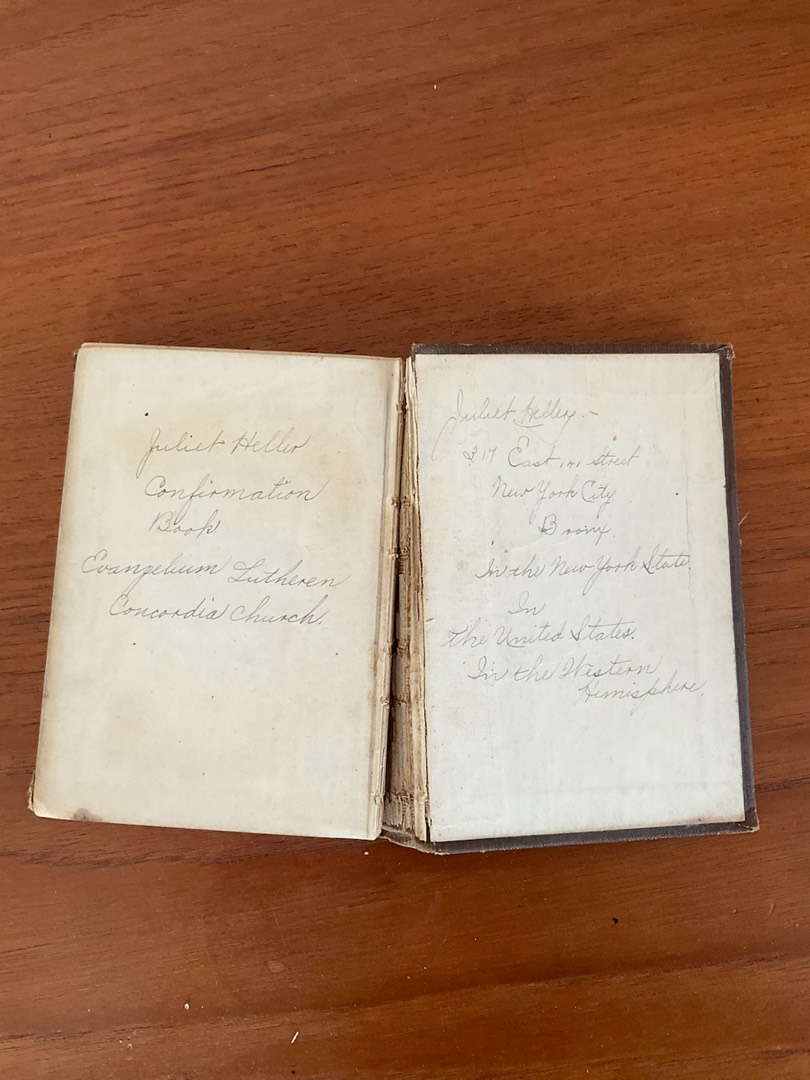 Juliet Heller
Confirmation
Book.
Evangelium Lutheren
Concordia Church.
Juliet Heller.
East 141 Street
New York City
Bronx.
In the New York State.
In
The United States.
In the Western
Hemisphere.